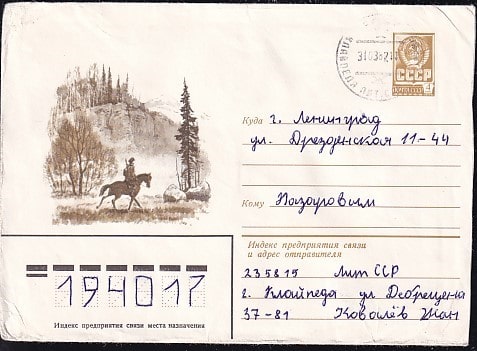 31 03 82
СССР
Куда г. Ленинград
ул. Дрезденская 11-44
Кому Назаровым
Индекс предприятия связи
и адрес отправителя
235819 Лит ССР
г. Клайпеда ул Дебрецена
37-81 Ковалёв Жан
194017
Индекс предприятия связи места назначения